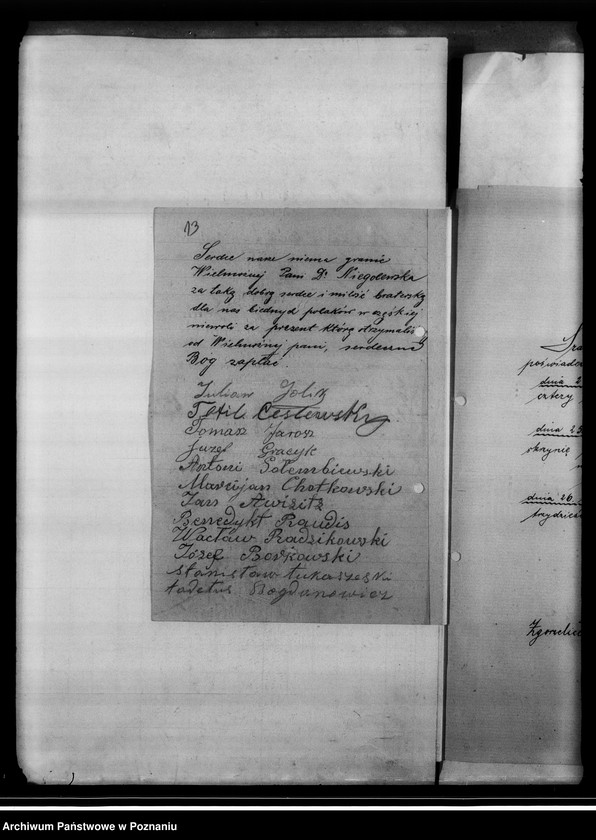 13
Serdce nasze niema granic
Wielmożnej Pani Dr Niegolewska
za taką dobrą serdce i miłość braterską
dla nas biednyd polaków w cęśkiej
niewoli za prezent którą otrzymaliś
od Wielmożnej pani, serdeczne
Bóg zapłać.
Julian
Teofil Cestowsky
Tomasz Jarosz
Juzef Gracyk
Antoni Gołembiewski
Marcijan Chotkowski
Jan Awizitz
Benedykt Raudis
Wacław Radzikowski
Józef Borkowski
Stanisław Łukaszeski
tadełus Bogdanowicz
poświadcz
dnia 2
cztery
dnia 23
skrzynię
dnia 26.
trzydzieś
Zgorzelic
Archiwum Państwowe w Poznaniu